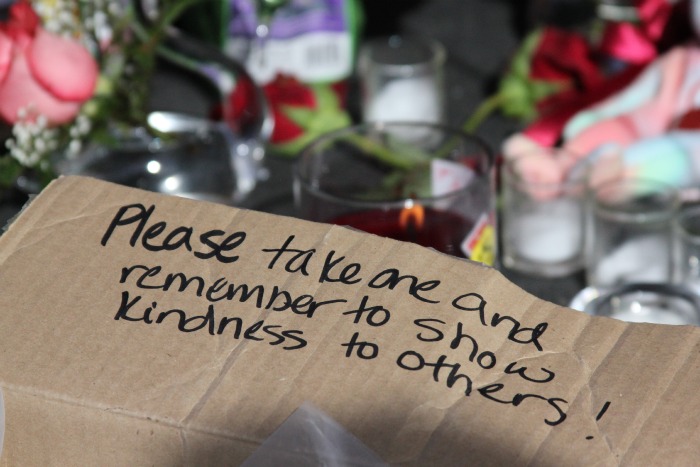 Please take one and
remember to show
kindness to others!